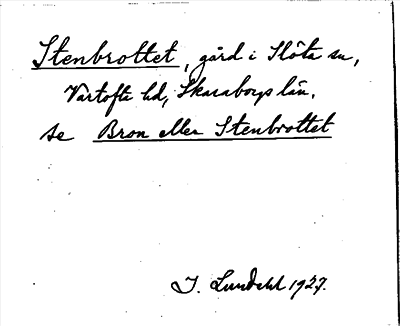 Stenbrottet, gård i Slöta sn,
Vartofta hd, Skaraborgs län.
se Bron eller Stenbrottet
I. Lundahl 1927.